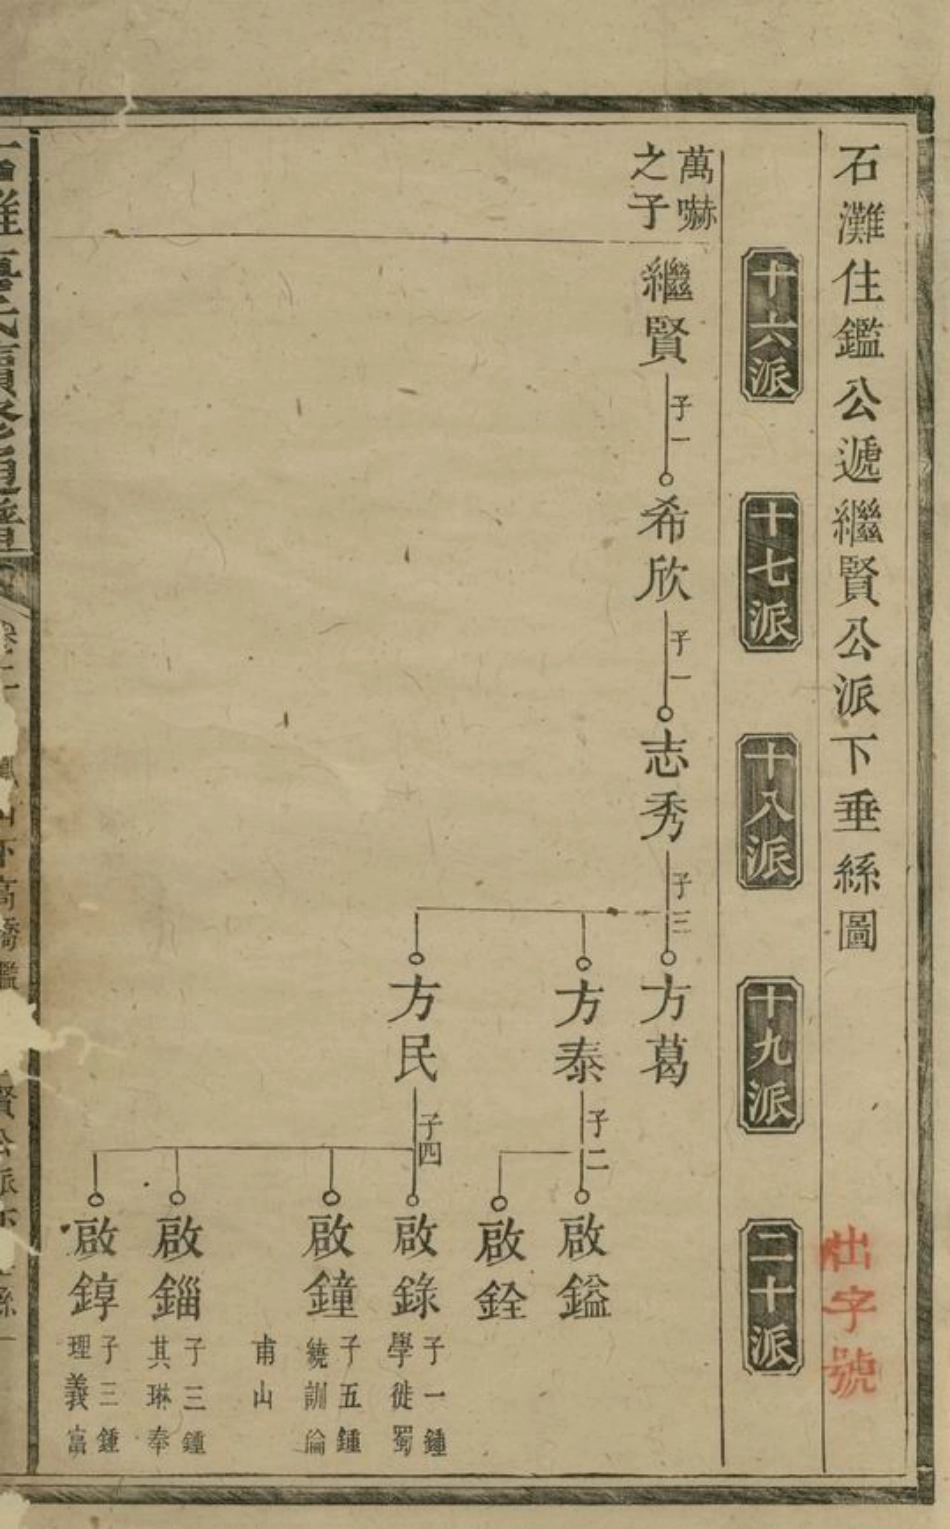 石灘住鑑公遞繼賢公派下垂絲圖
出字號
十六派
十七派
十八派
十九派
二十派
萬嚇
之子
繼賢
子一
希欣
子一
志秀
子三
方葛
方泰
子二
方民
子四
啟鎰
啟銓
啟錄
子一鍾
學徙蜀
啟鐘
子五鍾
繞訓倫
甫山
啟錙
子三鍾
其琳奉
啟錞
子三鍾
理義富